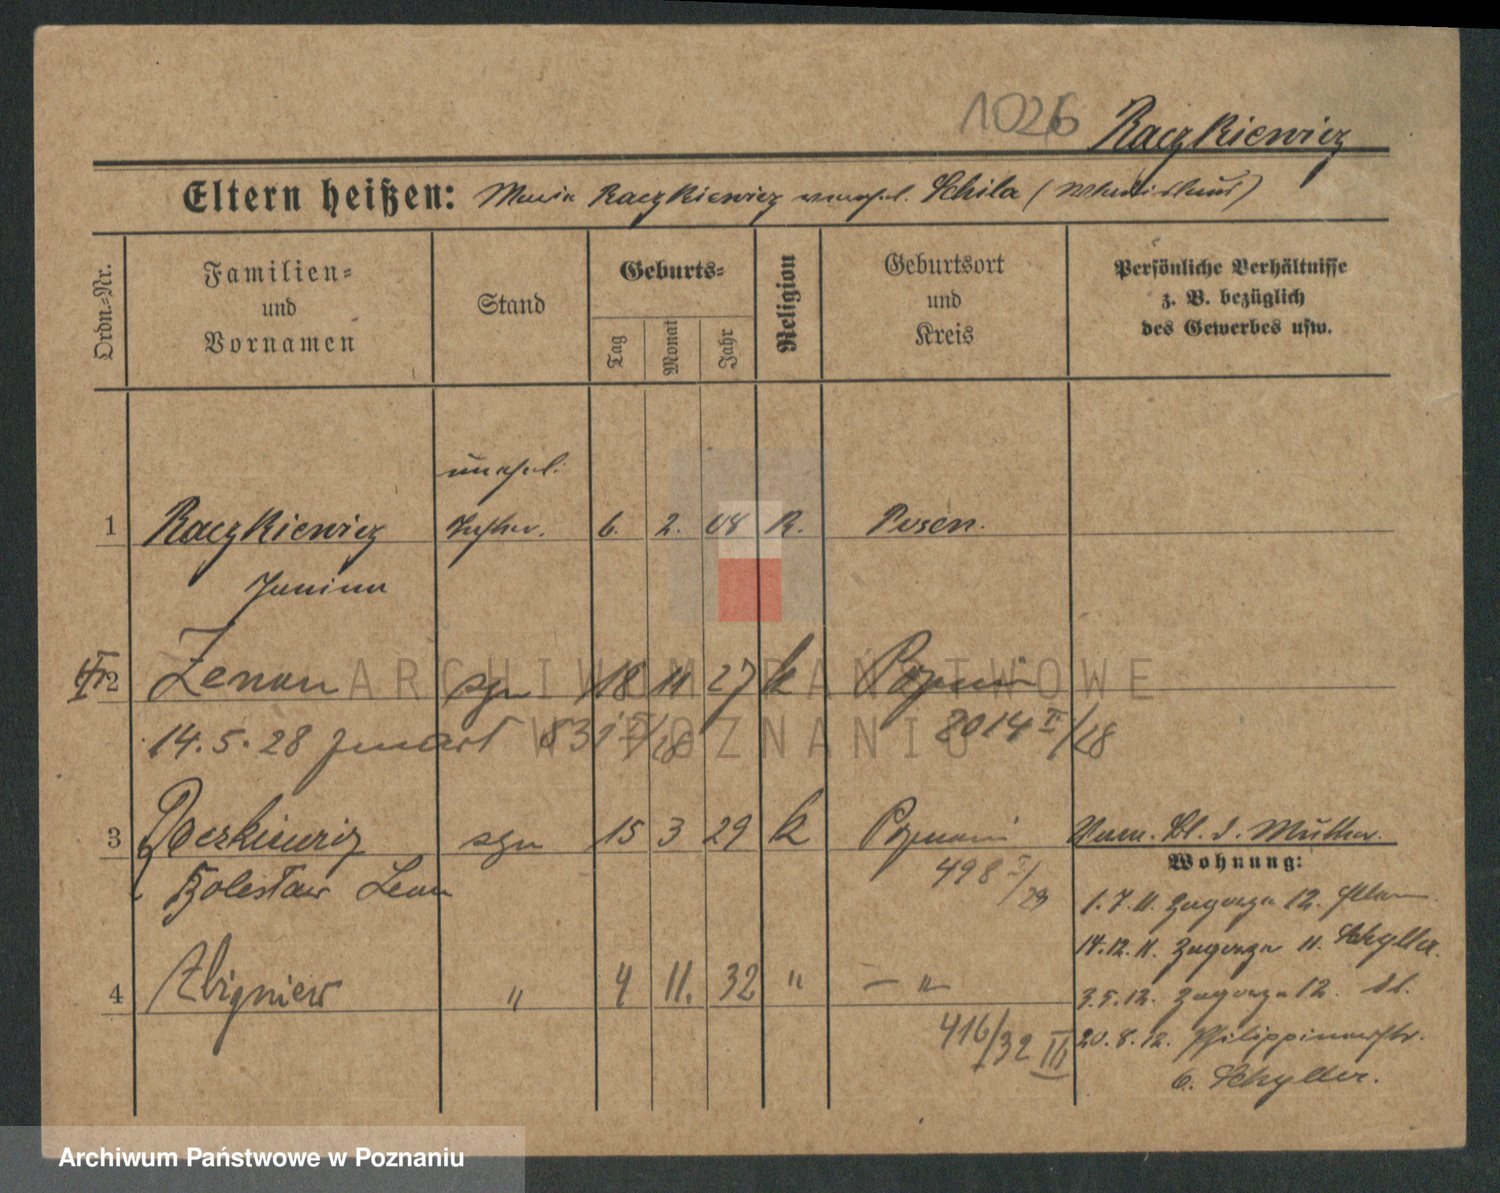 1026 Raczkiewicz
Eltern heißen: Maria Raczkiewicz verehel. Schila
Ordn.-Nr.
Familien-
und
Vornamen
Stand
Geburts-
Tag
Monat
Jahr
Religion
Geburtsort
und
Kreis
Persönliche Verhältnisse
z. B. bezüglich
des Gewerbes usw.
unehel.
1 Raczkiewicz Tochter. 6. 2. 08 R. Posen.
Janina
2 Zenon syn 18 11 27 k Poznań
14.5.28 zmarł 831 II/28 2014 II/28
3 Raczkiewicz syn 15 3 29 k Poznań Verm. Bl. d. Mutter.
Wohnung:
Bolesław Leon 498 I/29
1.7.11. Zagorze 12.
14.12.11. Zagorze 11. Schyller.
4 Zbigniew " 4 11. 32 " — " —
3.5.12. Zagorze 12.
416/32 III
20.8.12. Philippinenstr.
6. Schyller.
ARCHIWUM PAŃSTWOWE
W POZNANIU
Archiwum Państwowe w Poznaniu